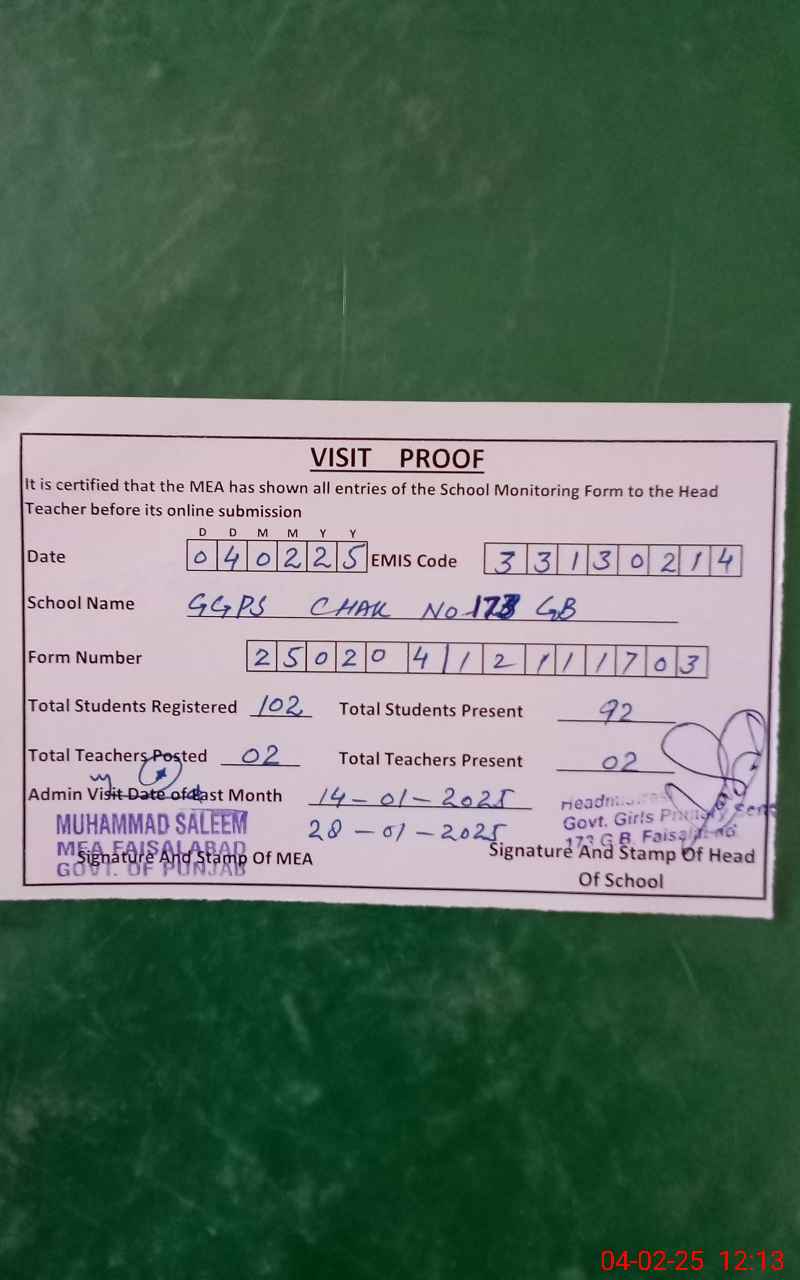 VISIT PROOF
It is certified that the MEA has shown all entries of the School Monitoring Form to the Head
Teacher before its online submission
D D M M Y Y
Date 040225 EMIS Code 33130214
School Name GGPS CHAK NO 173 GB
Form Number 25020412111703
Total Students Registered 102 Total Students Present 92
Total Teachers Posted 02 Total Teachers Present 02
Admin Visit Date of Last Month 14-01-2025
28-01-2025
MUHAMMAD SALEEM
MEA FAISALABAD
GOVT. OF PUNJAB
Signature And Stamp Of MEA
Govt. Girls
173 G.B. Faisalabad
Signature And Stamp Of Head
Of School
04-02-25 12:13